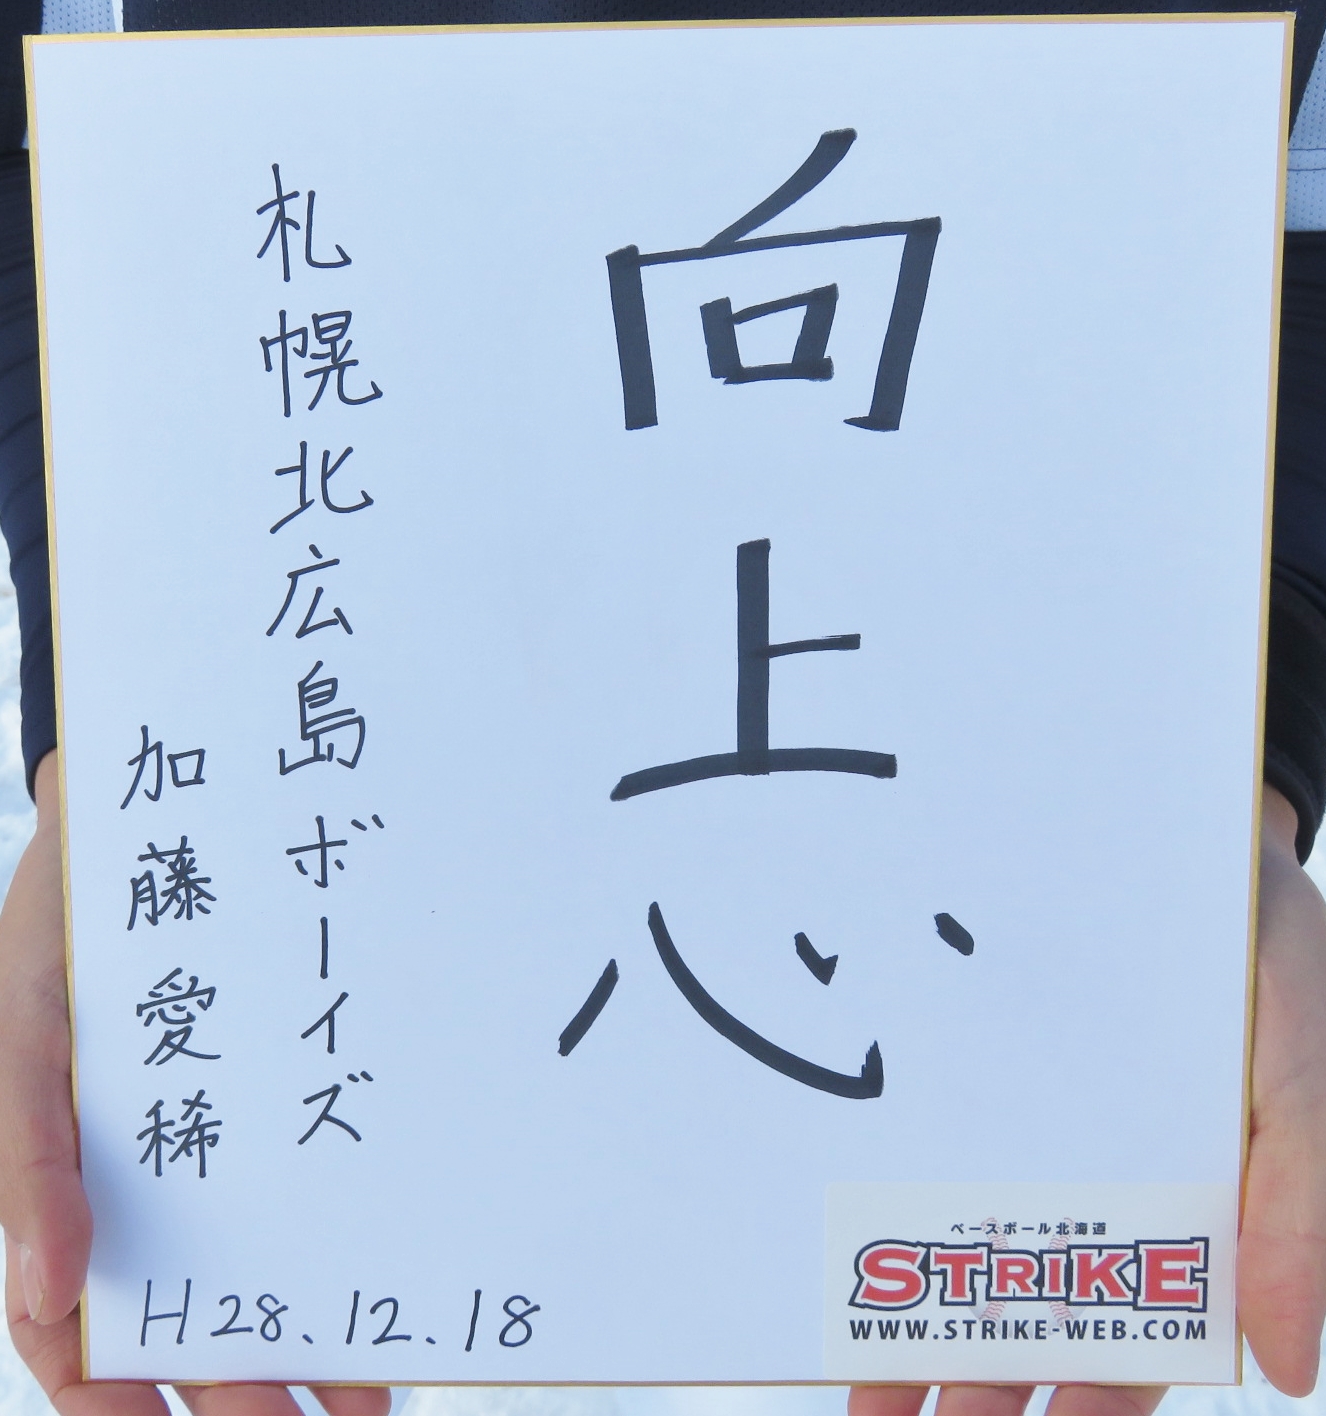 向上心
札幌北広島ボーイズ
加藤愛稀
H28.12.18
ベースボール北海道
STRIKE
WWW.STRIKE-WEB.COM